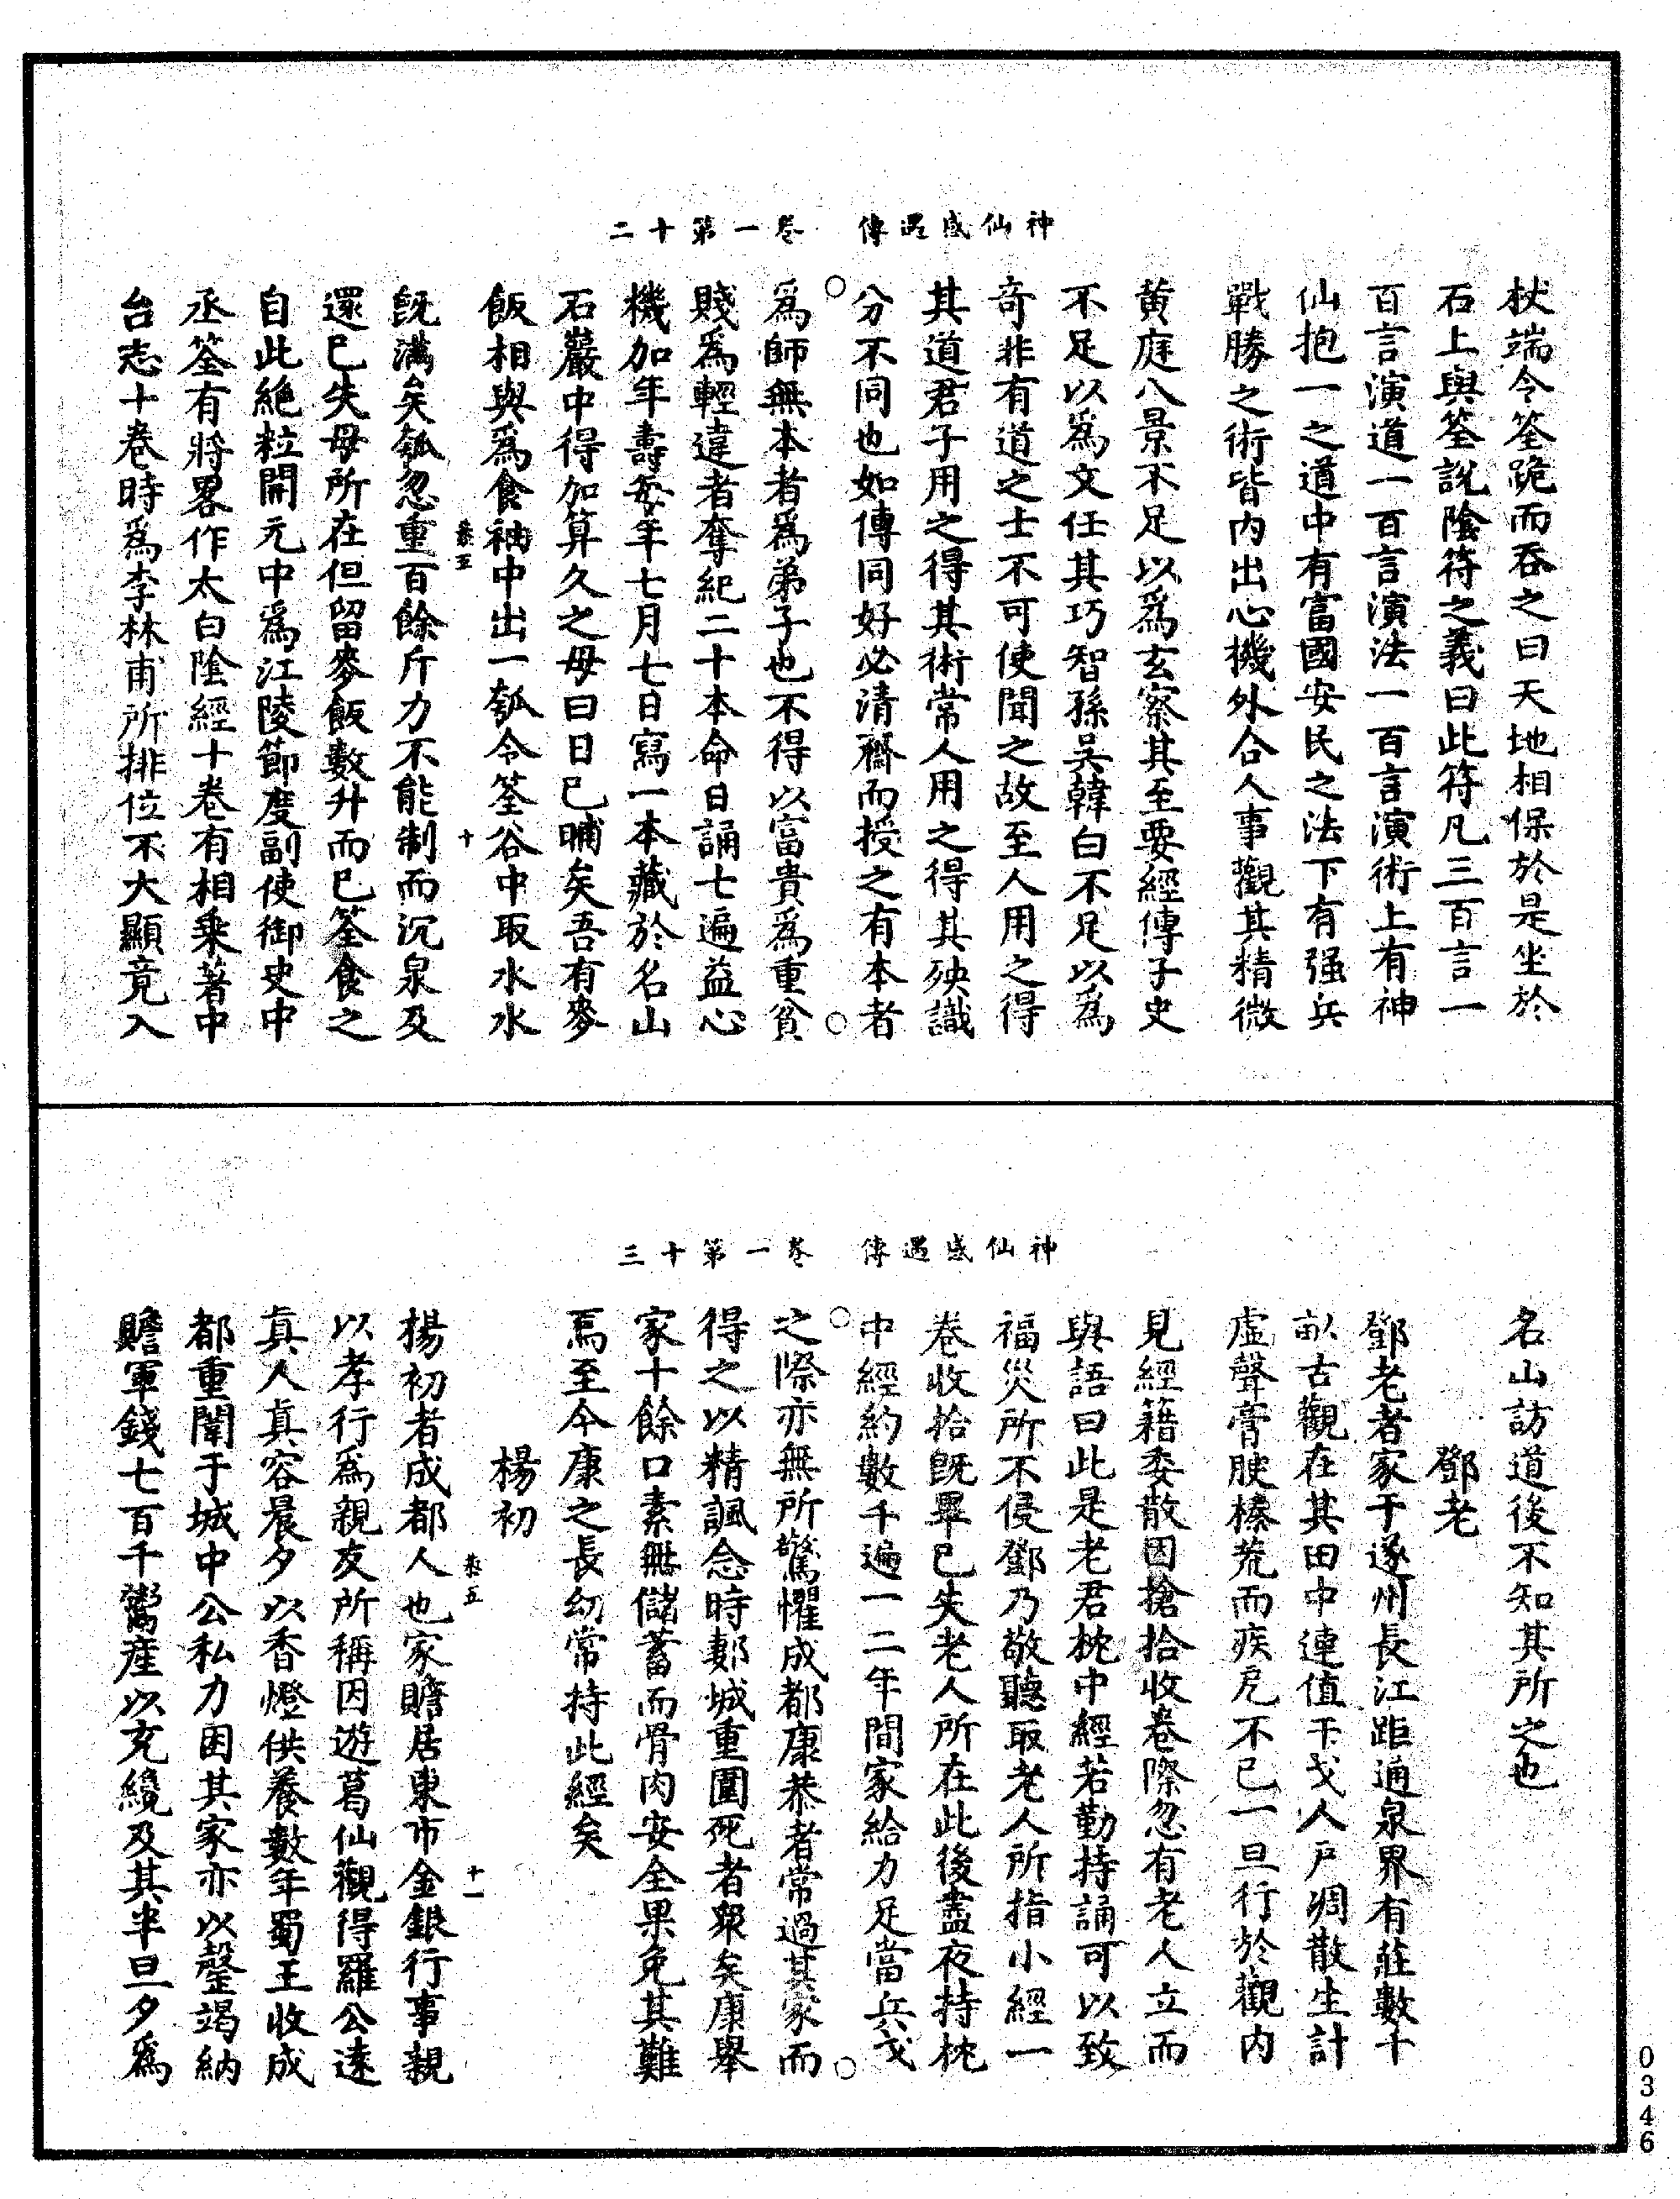 神仙感遇傳　卷一第十二
杖端令筌跪而吞之曰天地相保於是坐於
石上與筌說陰符之義曰此符凡三百言一
百言演道一百言演法一百言演術上有神
仙抱一之道中有富國安民之法下有强兵
戰勝之術皆内出心機外合人事觀其精微
黄庭八景不足以爲玄察其至要經傳子史
不足以爲文任其巧智孫吴韓白不足以爲
奇非有道之士不可使聞之故至人用之得
其道君子用之得其術常人用之得其殃識
分不同也如傳同好必清齋而授之有本者
爲師無本者爲弟子也不得以富貴爲重貧
賤爲輕違者奪紀二十本命日誦七遍益心
機加年壽每年七月七日寫一本藏於名山
石巖中得加算久之母曰日已晡矣吾有麥
飯相與爲食袖中出一瓠令筌谷中取水水
恭五　十
旣滿矣瓠忽重百餘斤力不能制而沉泉及
還已失母所在但留麥飯數升而已筌食之
自此絶粒開元中爲江陵節度副使御史中
丞筌有將畧作太白陰經十卷有相乘著中
台志十卷時爲李林甫所排位不大顯竟入
神仙感遇傳　卷一第十三
名山訪道後不知其所之也
鄧老
鄧老者家于遂州長江距通泉界有莊數十
畝古觀在其田中連值干戈人戶凋散生計
虚聲膏腴榛荒而疾戹不已一旦行於觀内
見經籍委散因搶拾收卷際忽有老人立而
與語曰此是老君枕中經若勤持誦可以致
福災所不侵鄧乃敬聽取老人所指小經一
卷收拾旣畢已失老人所在此後晝夜持枕
中經約數千遍一二年間家給力足當兵戈
之際亦無所驚懼成都康恭者常過其家而
得之以精諷念時鄴城重圍死者衆矣康舉
家十餘口素無儲蓄而骨肉安全果免其難
焉至今康之長幼常持此經矣
楊初
恭五　十一
楊初者成都人也家贍居東市金銀行事親
以孝行爲親友所稱因遊葛仙觀得羅公遠
真人真容晨夕以香燈供養數年蜀王收成
都重闉于城中公私力困其家亦以罄竭納
贍軍錢七百千鬻産以充纔及其半旦夕爲
0346